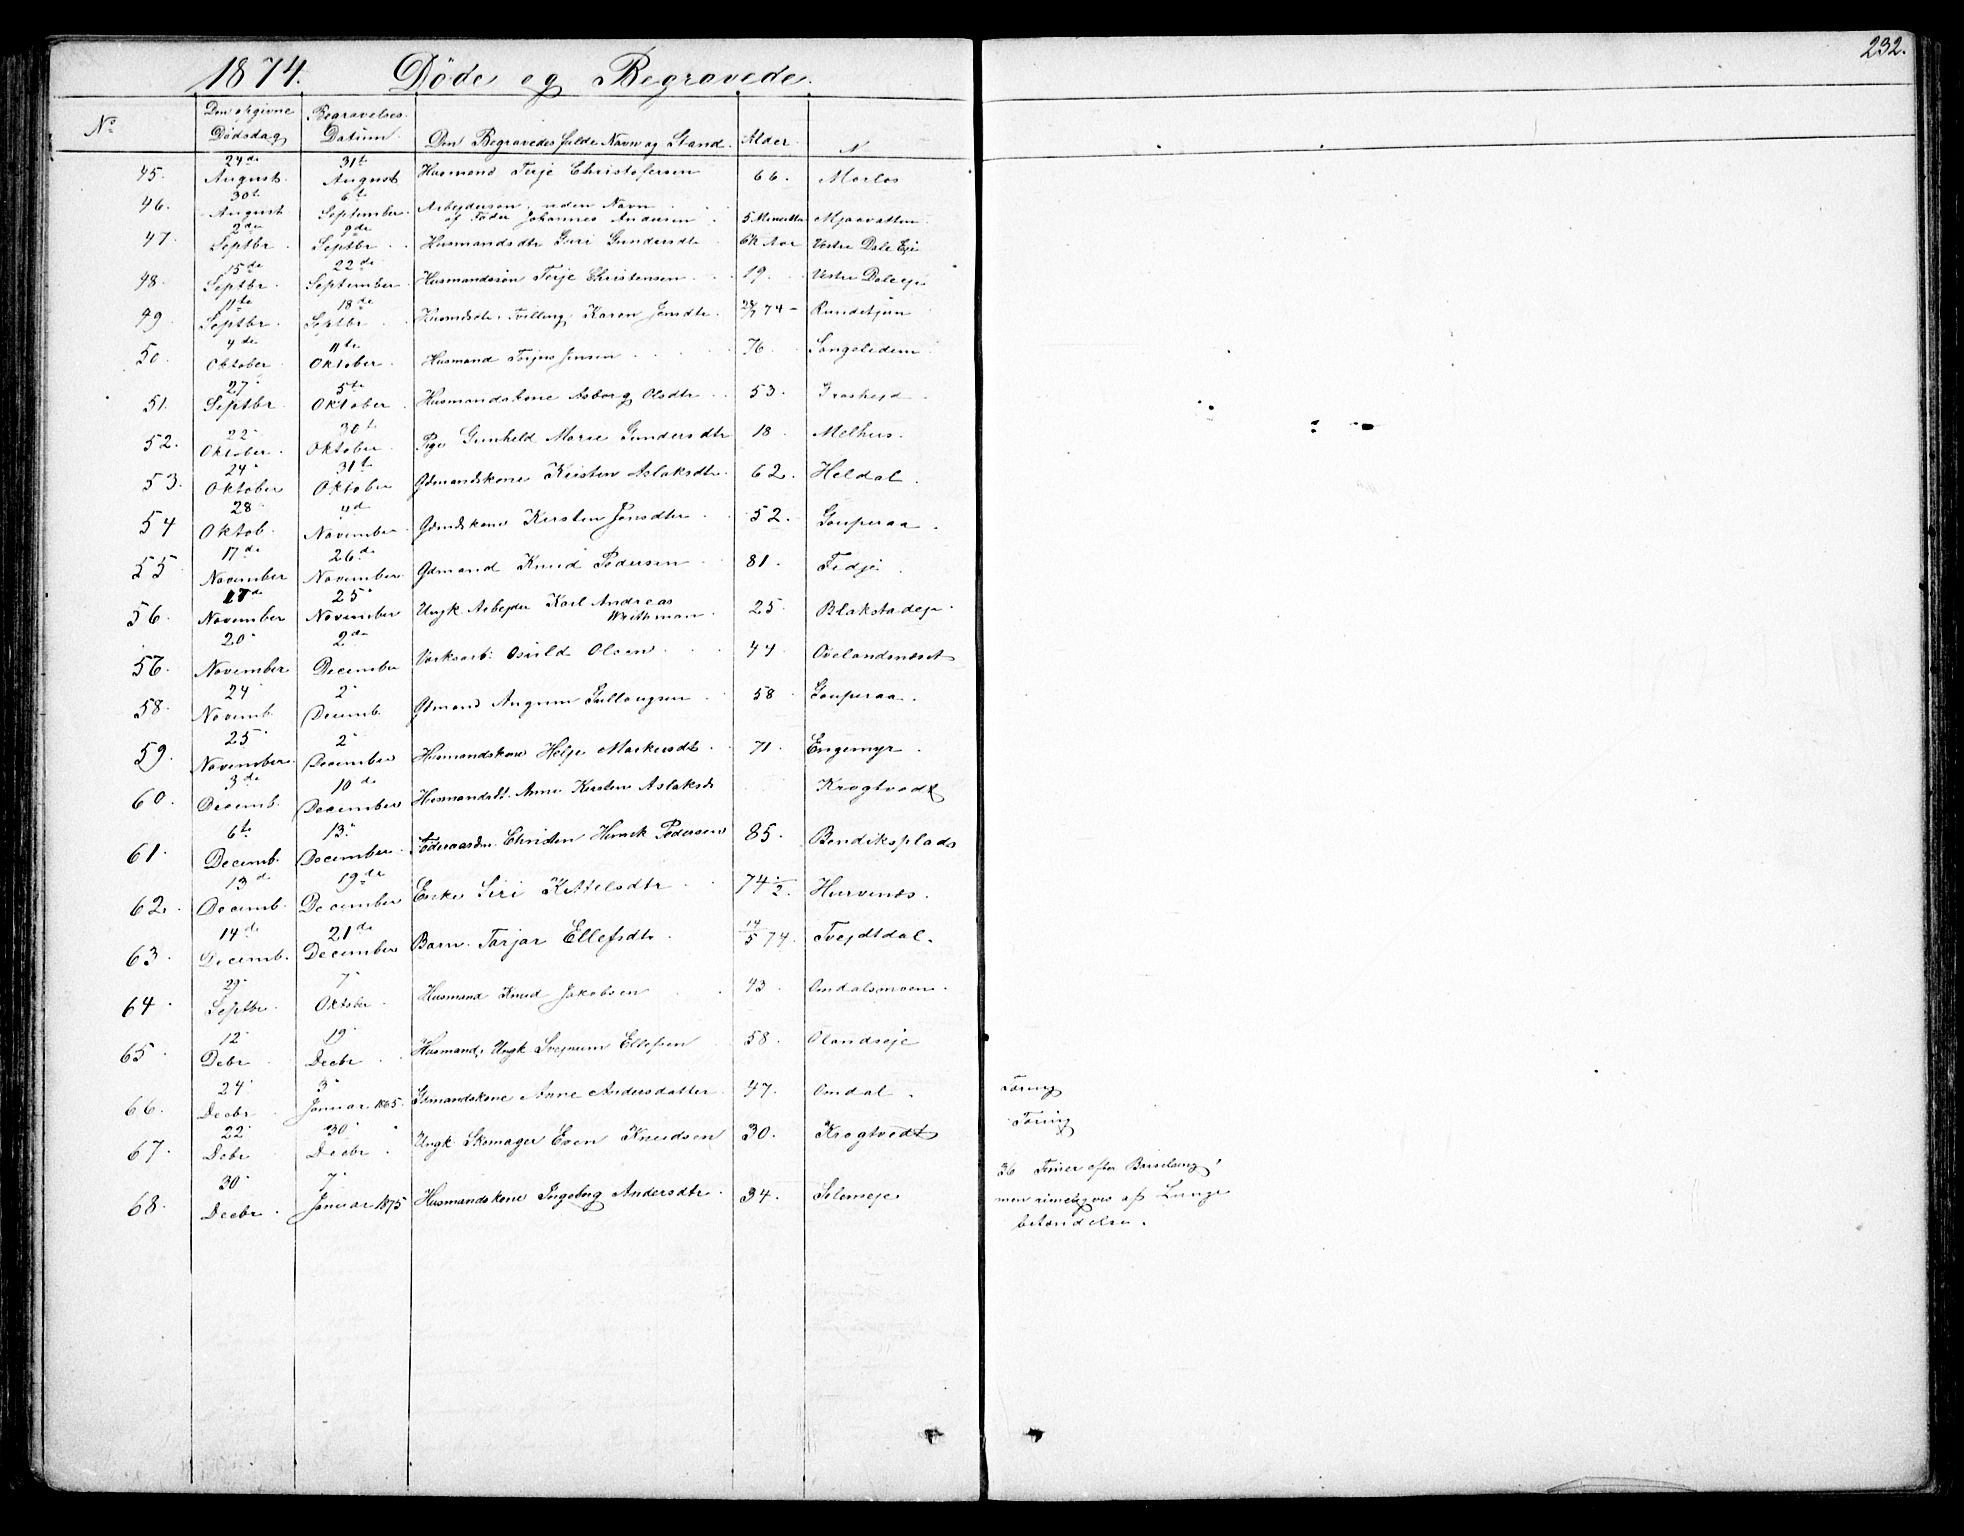 232.
1874. Døde og Begravede.
No Den opgivne Dødsdag Begravelses Datum. Den Begravedes fulde Navn og Stand. Alder. N
45. 24de August. 31te August Husmand Terje Christofersen 66. Morlos
46. 30te August 6te September Arbejdersøn uden Navn
af Fader Johannes Andersen 5 Minutter Mjaavatten
47. 2de Septbr. 9de Septbr. Husmandsdtr Guri Gundersdtr 6½ Aar Vestre Dale Eje
48. 15de Septbr. 22de September Husmandssøn Terje Christensen 19. Vestre Dale eje
49. 11te Septbr. 18de Septbr. Tvilling Karen Jensdtr. 74 Rundetjøn
50. 4de Oktober. 11te Oktober. Husmand Jensen 76 Songeledem
51. 27 Septbr 5te Oktober Husmandskone Asborg Olsdtr 53. Grasheid
52. 22 Oktober. 30te Oktober. Pige Gunhild Marie Gundersdtr 18 Melhus.
53. 24 Oktober 31te Oktober Gdmandskone Kirsten Aslaksdtr. 62. Heldal.
54 28 Oktob. 4de November Gdmdskone Kirsten Jonsdtr 52. Gouperaa.
55. 17de November 26de November. Gdmand Knud Pedersen 81. Fidje.
56. 17de November 25 November Ungk Arbejder Karl Andreas
Writhman. 25. Blakstadeje.
57. 20 November 2de December Verksarb: Osuld Olsen 44 Ovelandsneset
58. 24 Novemb. 2 Decemb. Gdmand Angrim Tellougsen 58 Gouperaa.
59. 25 November. 2 December Husmandskone Helje Markusdtr. 71. Engemyr.
60. 3de Decemb. 10de December Husmandsdt. Anne Kirsten Aslaksd Krogtvedt
61. 6te Decemb. 13. December. Føderaadm. Christen Henrik Pedersen 85. Bendiksplads
62. 13de Decemb. 19de December Enke Siri Kittelsdtr 74½. Hurvenes.
63. 14de Decemb. 21de December Barn Tarjar Ellefsdtr. 14/5 74. Tvejtdal.
64. 29 Septbr. 7 Oktober. Husmand Knud Jakobsen 43 Omdalsmoen.
65. 12 Debr 19 Decbr Husmand, Ungk Svejnum Ellefsen 58. Olandseje
66. 24 Decbr 3 Januar 1865. Gdmandskone Anne Andersdatter. 47. Omdal. Tæring
67. 22 Debr 30 Decbr. Ungk Skomager Even Knudsen 30. Krogtvedt Tæring
68. 30 Decbr. 7 Januar 1875 Husmandskone Ingeborg Andersdtr. 34. Selomeje 36 Timer efter Barselseng,
men rimeligvis af Lunge
betændelse.